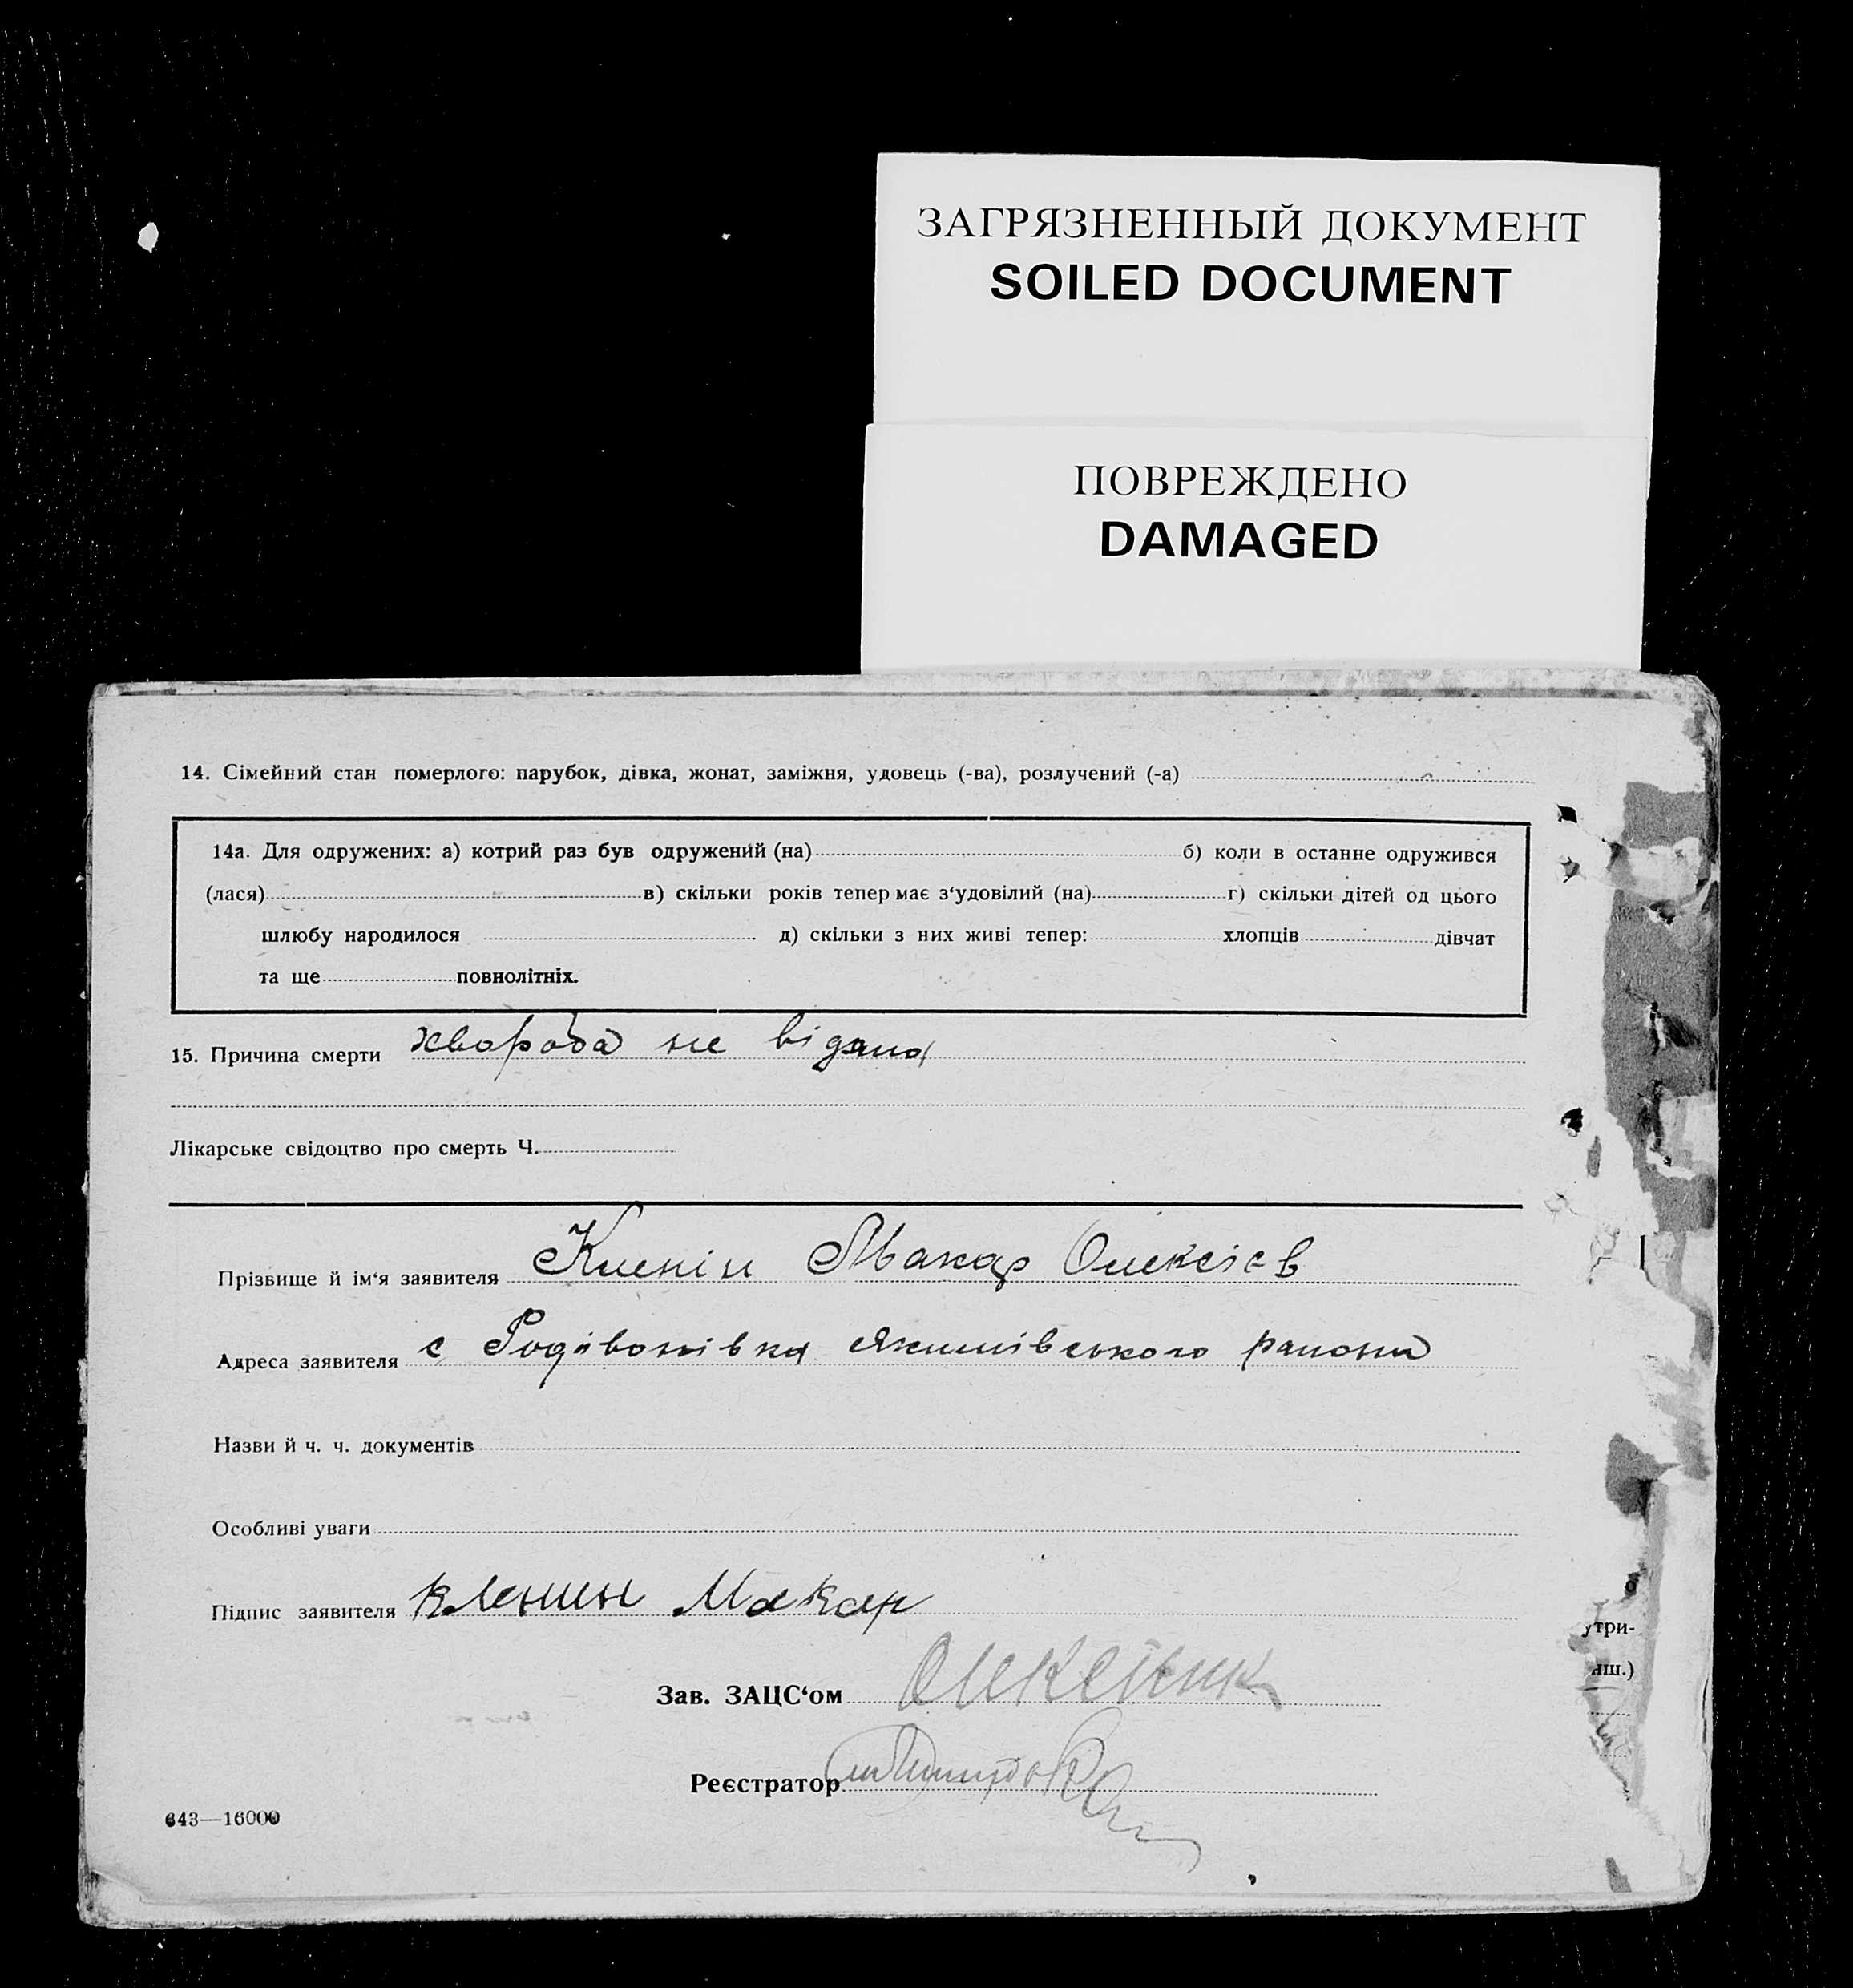 ЗАГРЯЗНЕННЫЙ ДОКУМЕНТ
SOILED DOCUMENT
ПОВРЕЖДЕНО
DAMAGED
14. Сімейний стан померлого: парубок, дівка, жонат, заміжня, удовець (-ва), розлучений (-а)
14а. Для одружених: а) котрий раз був одружений (на) б) коли в останне одружився
(лася) в) скільки років тепер має з‘удовілий (на) г) скільки дітей од цього
шлюбу народилося д) скільки з них живі тепер: хлопців дівчат
та ще повнолітніх.
15. Причина смерти хвороба не відана
Лікарське свідоцтво про смерть Ч.
Прізвище й ім‘я заявителя Кленін Макар Олексієв
Адреса заявителя с Родівонівка Якимівського района
Назви й ч. ч. документів
Особливі уваги
Підпис заявителя Кленин Макар
утри-
Зав. ЗАЦС‘ом
иш.)
Реєстратор
643—16000